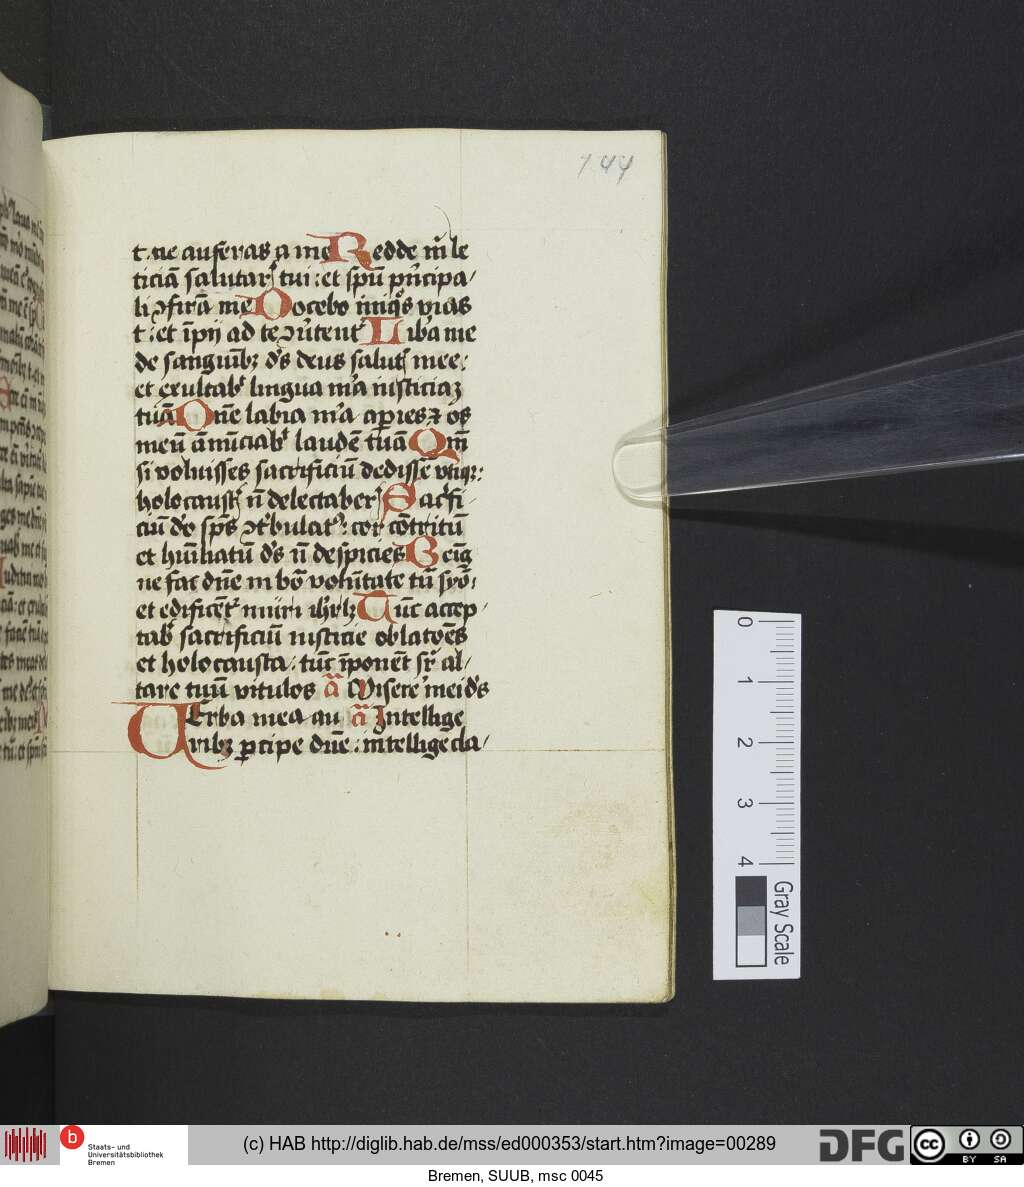 144
t. ne auferas a me Redde m̄ le
ticiā salutar̄ tui : et spū pn̄cipa/
li ꝯfirā me Docebo iniqͦs vias
t : et īpij ad te ꝯūtent᷑ Lib̄a me
de sanguīb⁊ dˢ deus salut̄ mee :
et exultab᷑ lingua m̄a iusticiaꝫ
tuā Dn̄e labia m̄a aperies ⁊ os
meū ānūciab᷑ laudē tuā Qm̄
si voluisses sacrificiū dedissē vtiqꝫ :
holocaust̄ n̄ delectaber᷑ Sacͥfi
ciū dͦo spūs ꝯtͥbulatꝰ : cor cōtritū
et hūiliatū dˢ n̄ despicies Beīg
ne fac dn̄e in bō volūtate tū syō/
et edificēt᷑ muri ih̄rl̄m Tūc accep/
tab᷑ sacrificiū iusticie oblatōēs
et holocausta : tūc īponēt sr̄ al/
tare tuū vitulos ā Misere mei dˢ
VErba mea au ā Intellige
rib⁊ ꝑcipe dn̄e : intellige cla/
0
1
2
3
4
Gray Scale
b
Staats- und
Universitätsbibliothek
Bremen
(c) HAB http://diglib.hab.de/mss/ed000353/start.htm?image=00289
DFG
cc
BY SA
Bremen, SUUB, msc 0045